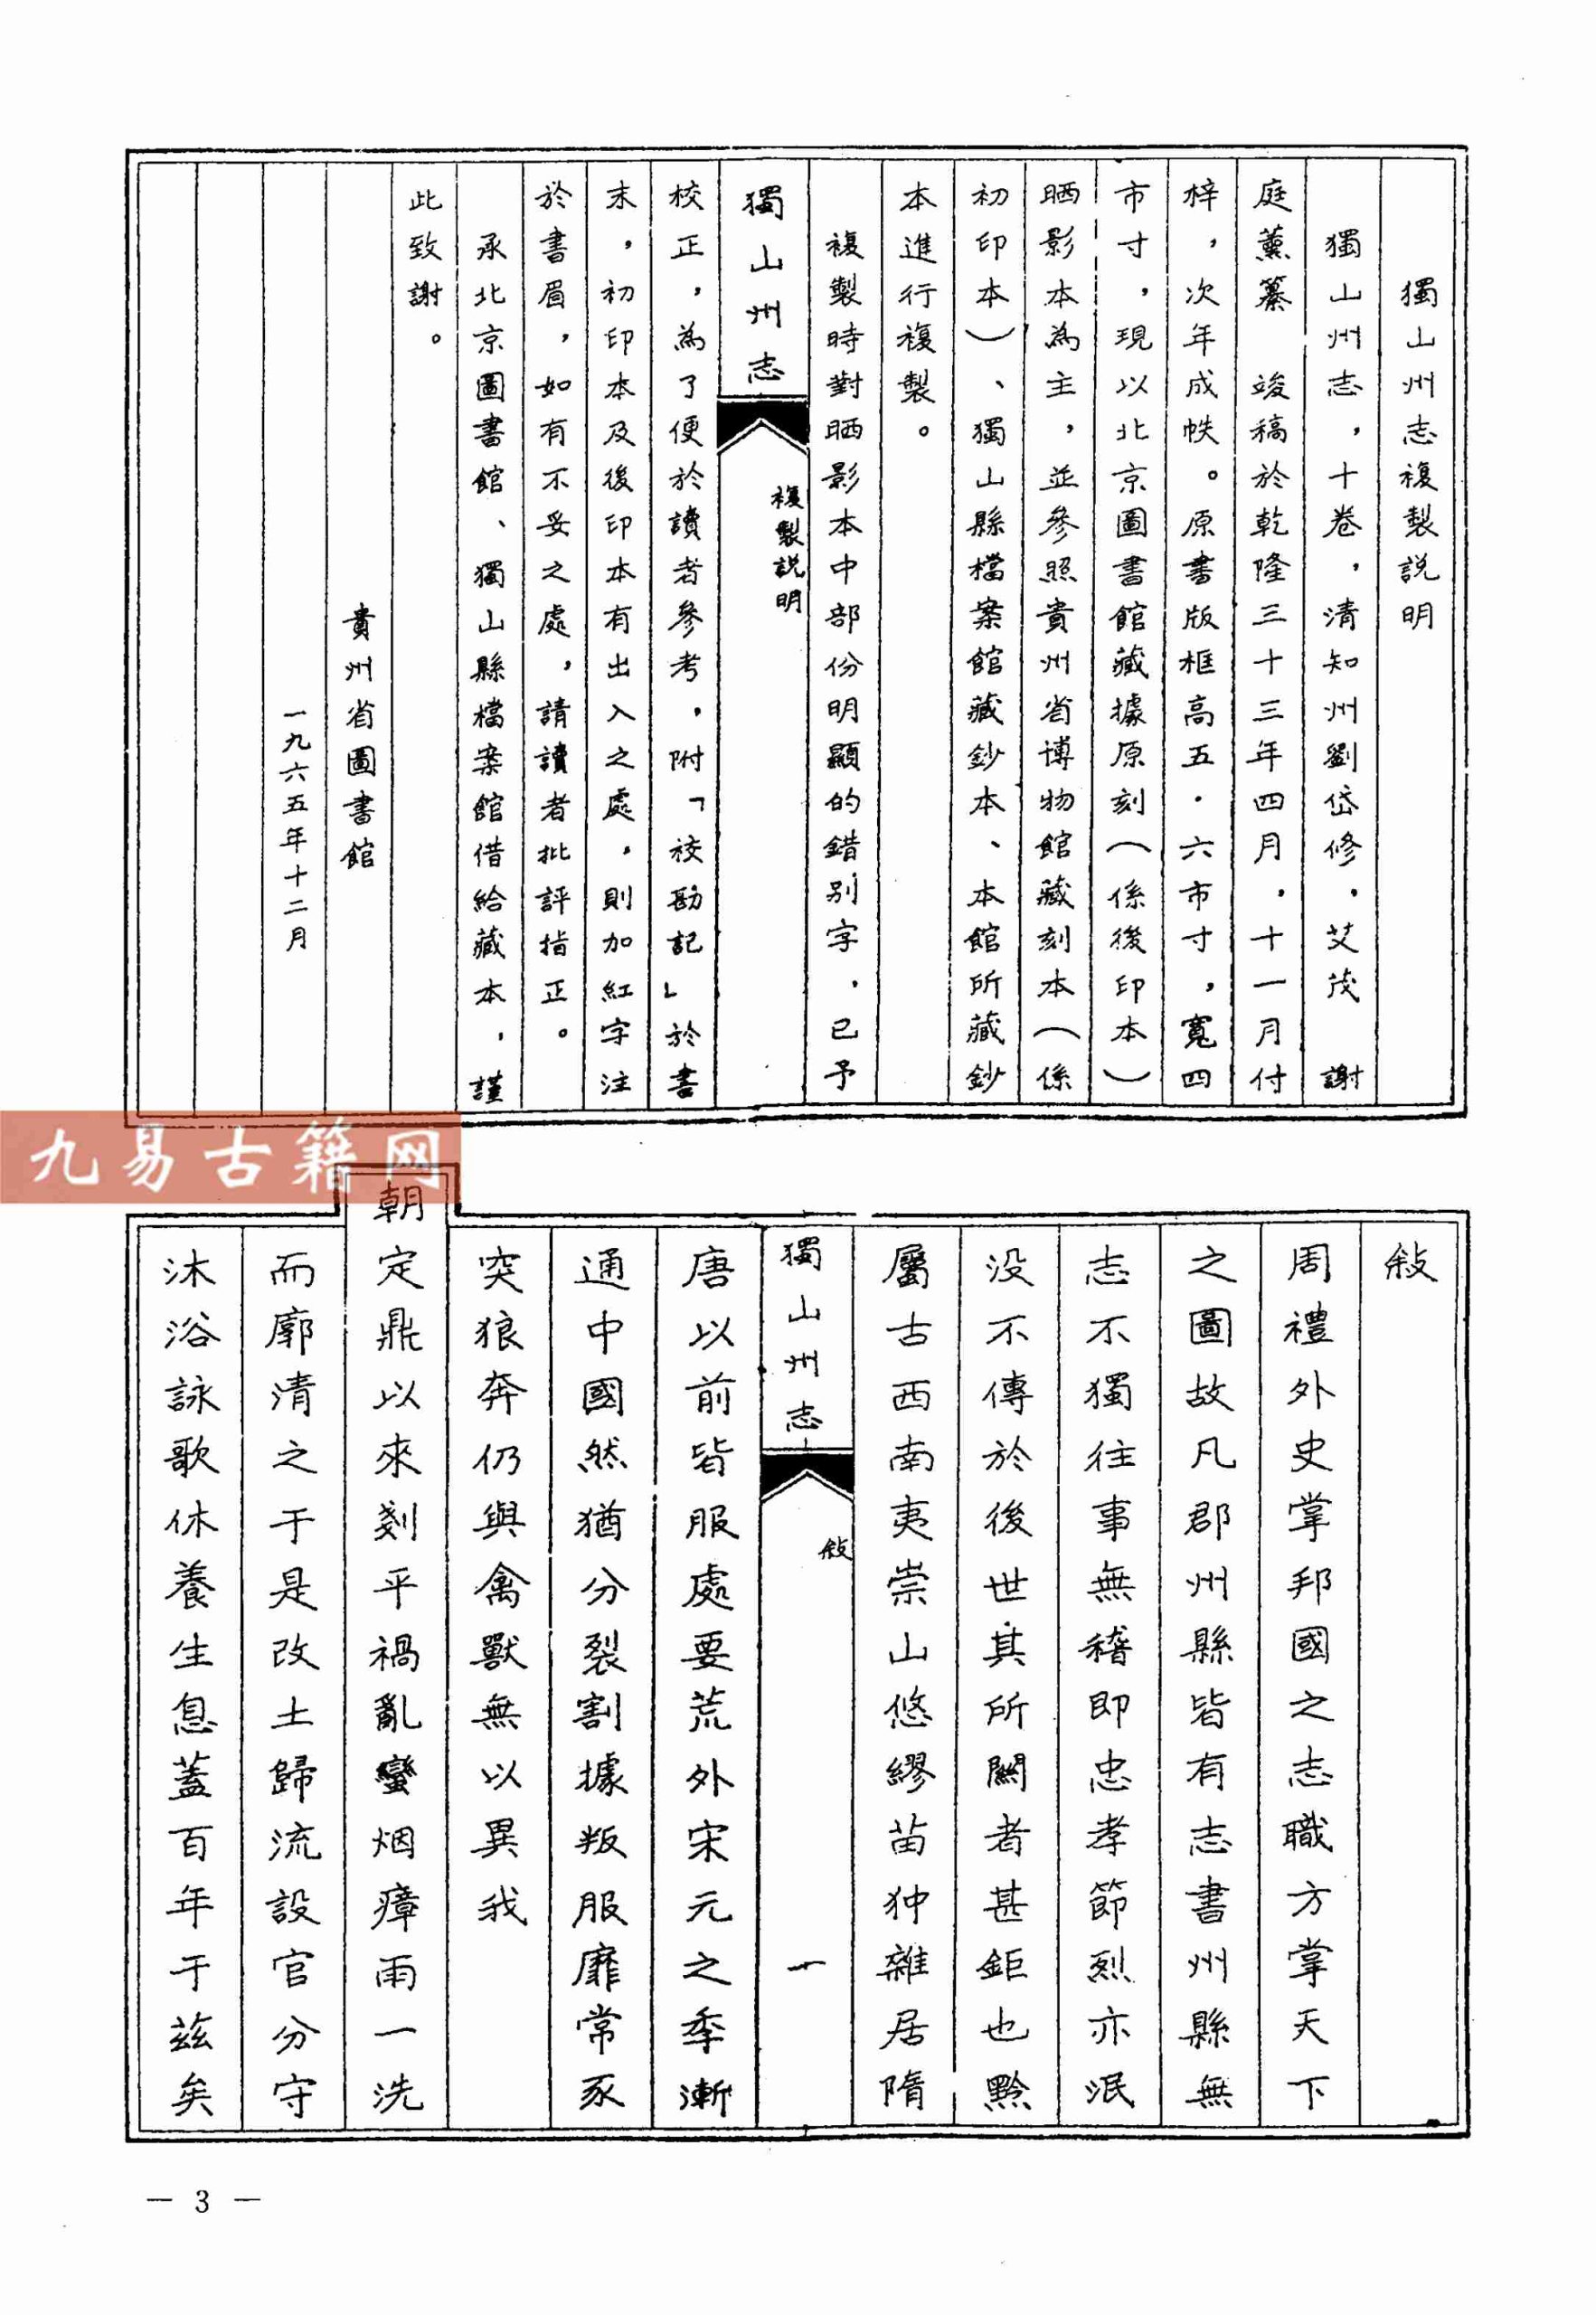 獨山州志複製説明
獨山州志，十卷，清知州劉岱修，艾茂　謝
庭薰纂　竣稿於乾隆三十三年四月，十一月付
梓，次年成帙。原書版框高五．六市寸，寬四
市寸，現以北京圖書館藏據原刻（係後印本）
晒影本為主，並參照貴州省博物館藏刻本（係
初印本）、獨山縣檔案館藏鈔本、本館所藏鈔
本進行複製。
複製時對晒影本中部份明顯的錯別字，已予
獨山州志
複製説明
校正，為了便於讀者參考，附「校勘記」於書
末，初印本及後印本有出入之處，則加紅字注
於書眉，如有不妥之處，請讀者批評指正。
承北京圖書館、獨山縣檔案館借給藏本，謹
此致謝。
貴州省圖書館
一九六五年十二月
九易古籍网
敍
周禮外史掌邦國之志職方掌天下
之圖故凡郡州縣皆有志書州縣無
志不獨往事無稽即忠孝節烈亦泯
没不傳於後世其所闕者甚鉅也黔
屬古西南夷崇山悠繆苗狆雜居隋
獨山州志
敍
一
唐以前皆服處要荒外宋元之季漸
通中國然猶分裂割據叛服靡常豕
突狼奔仍與禽獸無以異我
朝定鼎以來剗平禍亂蠻烟瘴雨一洗
而廓清之于是改土歸流設官分守
沐浴詠歌休養生息蓋百年于茲矣
— 3 —